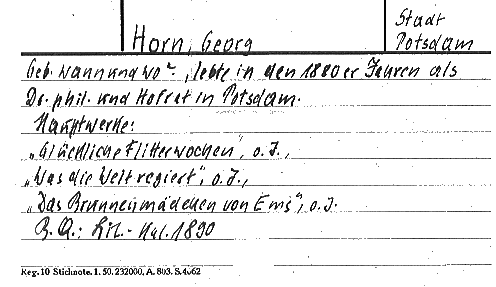 Horn, Georg
Stadt
Potsdam
Geb. wann und wo?, lebte in den 1880er Jahren als
Dr. phil. und Hofrat in Potsdam.
Hauptwerke:
„Glückliche Flitterwochen", o. J.,
„Was die Welt regiert", o. J.,
„Das Brunnenmädchen von Ems", o. J.
B. Q.: Lit.-Kal. 1890
Reg. 10 Stichnote. 1. 50. 232000. A. 803. S. 4062